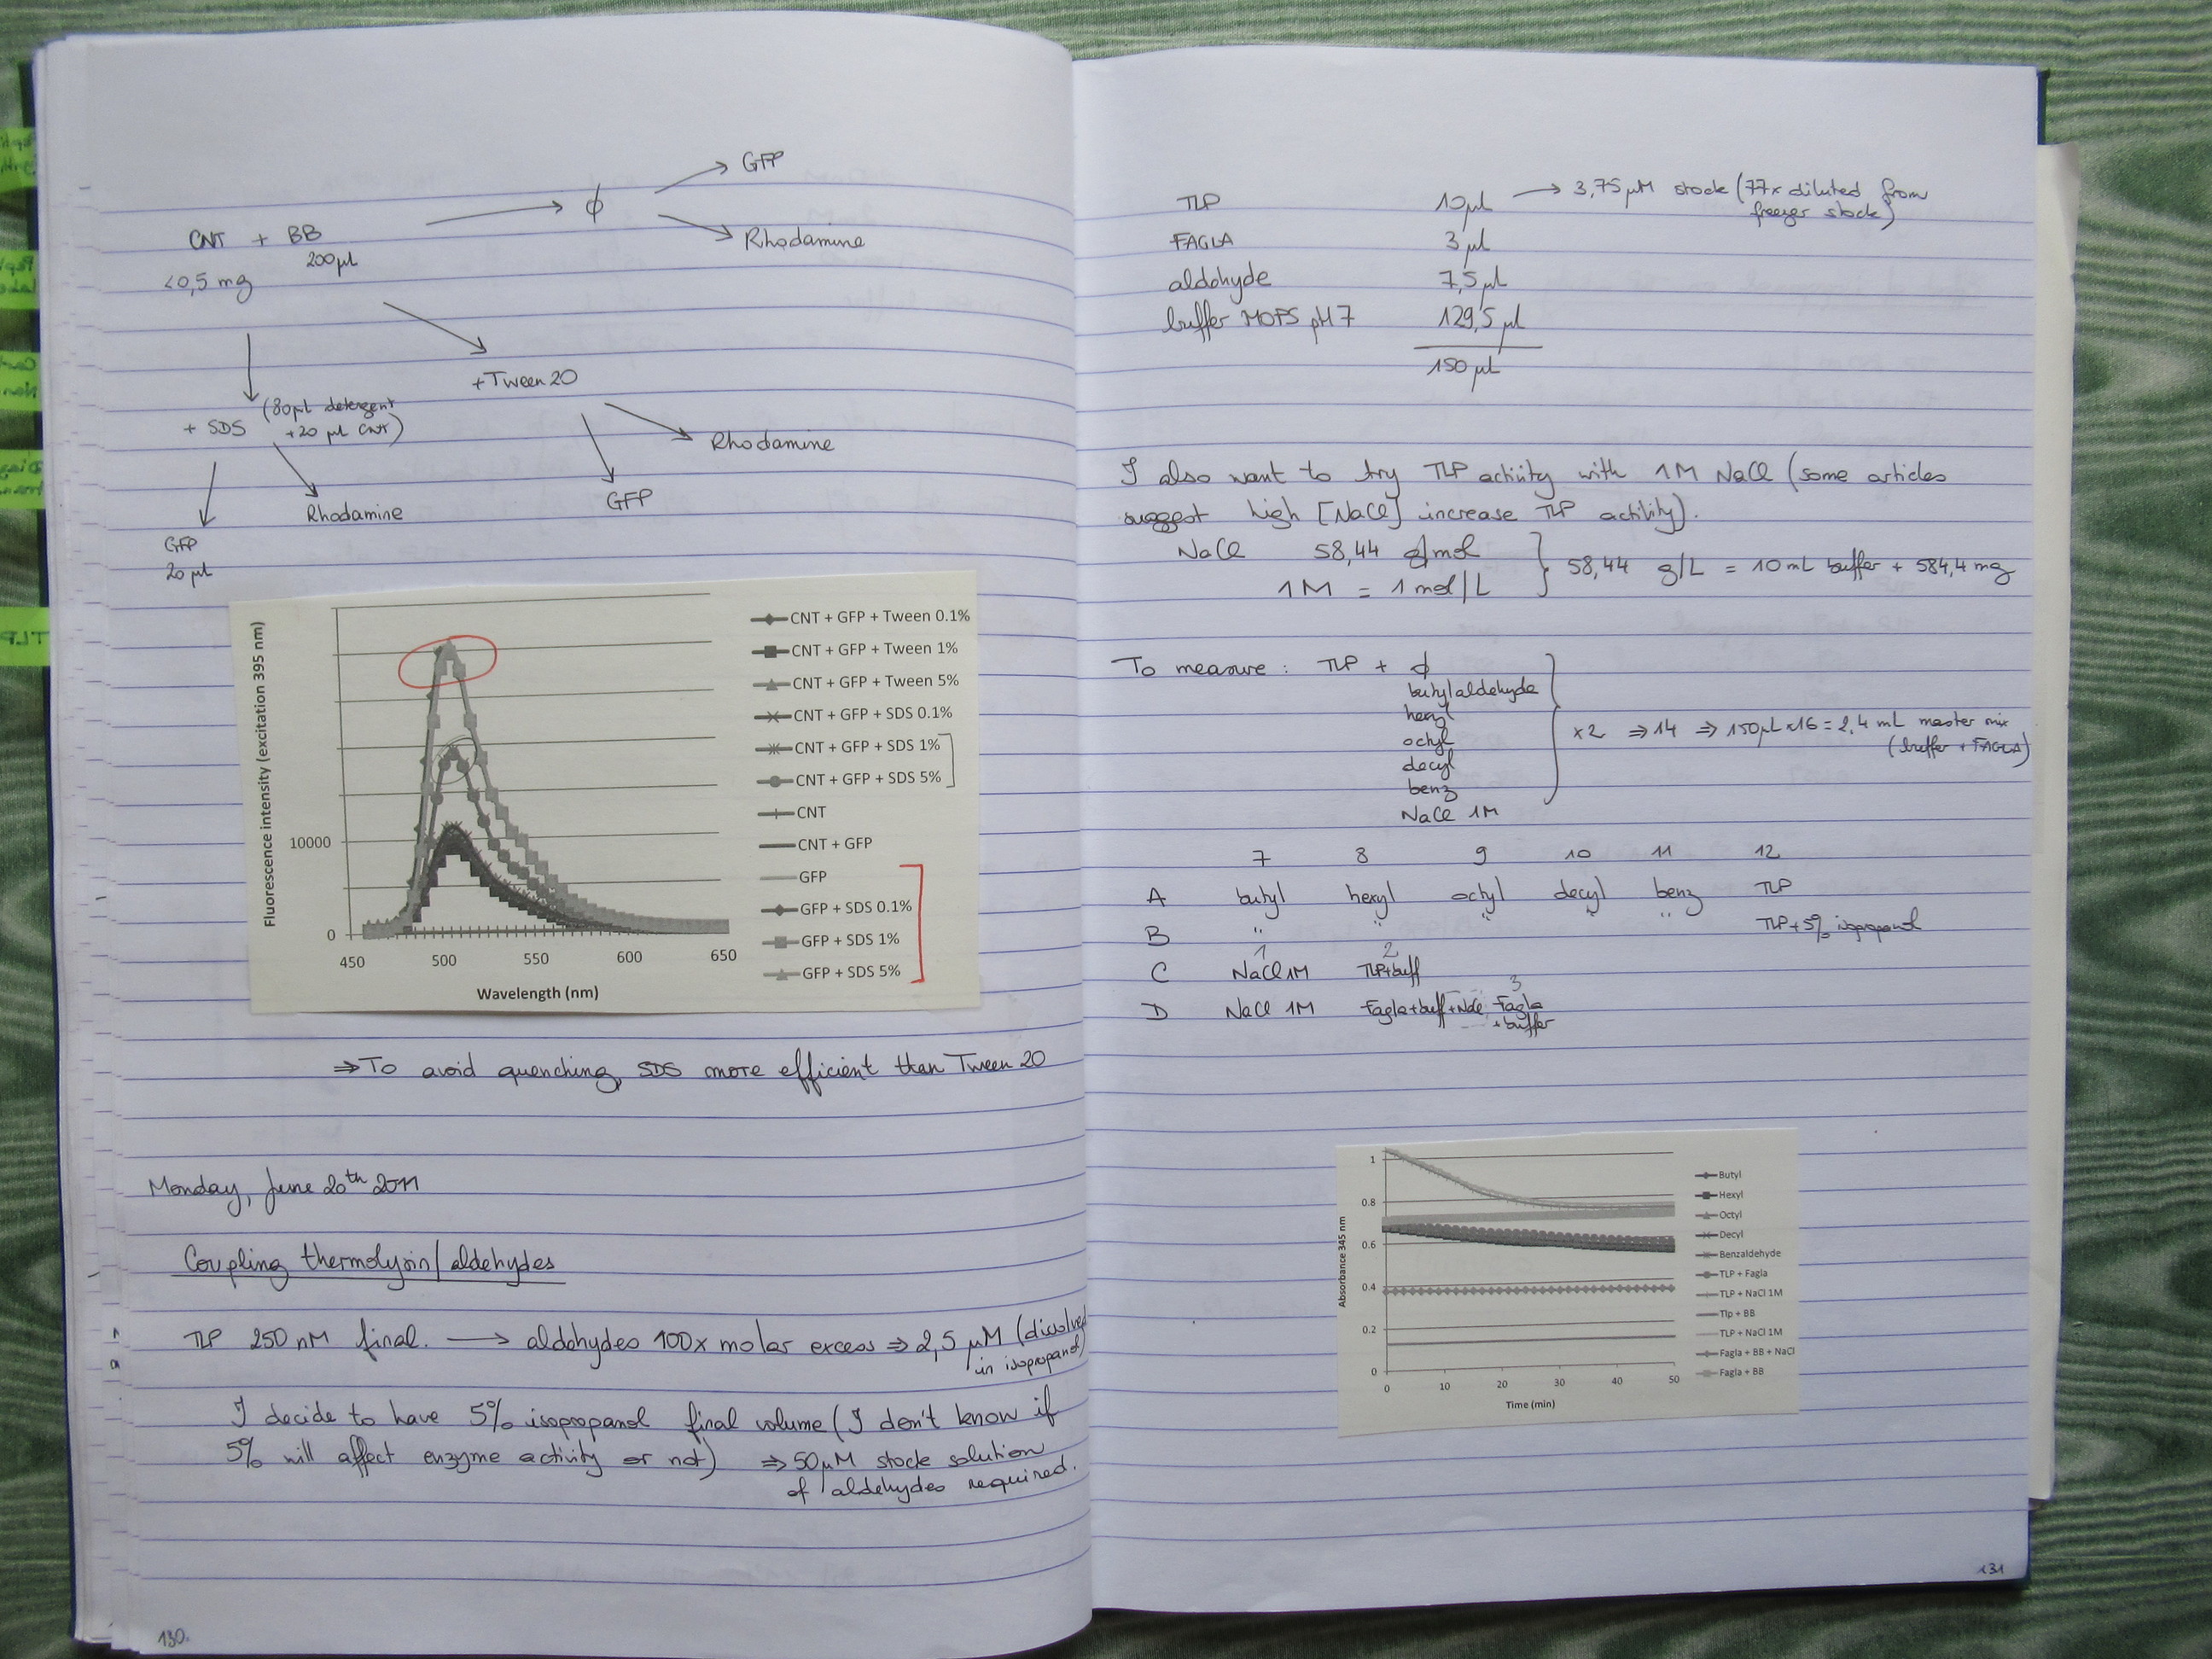 GFP
CNT + BB → ϕ
200µl
<0,5 mg
Rhodamine
+ Tween 20
+ SDS (80µl detergent
+20 µl CNT)
Rhodamine
GFP
Rhodamine
GFP
20µl
Fluorescence intensity (excitation 395 nm)
10000
0
450 500 550 600 650
Wavelength (nm)
CNT + GFP + Tween 0.1%
CNT + GFP + Tween 1%
CNT + GFP + Tween 5%
CNT + GFP + SDS 0.1%
CNT + GFP + SDS 1%
CNT + GFP + SDS 5%
CNT
CNT + GFP
GFP
GFP + SDS 0.1%
GFP + SDS 1%
GFP + SDS 5%
⇒ To avoid quenching, SDS more efficient than Tween 20
Monday, June 20th 2011
Coupling thermolysin/aldehydes
TLP 250 nM final. → aldehydes 100x molar excess ⇒ 2,5 µM (dissolved
in isopropanol)
I decide to have 5% isopropanol final volume (I don't know if
5% will affect enzyme activity or not) ⇒ 50µM stock solution
of aldehydes required.
130.
TLP 10µl → 3,75µM stock (77x diluted from
freezer stock)
FAGLA 3 µl
aldehyde 7,5µl
buffer MOPS pH 7 129,5 µl
150 µl
I also want to try TLP activity with 1M NaCl (some articles
suggest high [NaCl] increase TLP activity).
NaCl 58,44 g/mol
1M = 1 mol/L } 58,44 g/L = 10 mL buffer + 584,4 mg
To measure : TLP + ϕ
butylaldehyde
hexyl
octyl
decyl
benz
NaCl 1M
x2 ⇒ 14 ⇒ 150µL x16 = 2,4 mL master mix
(buffer + FAGLA)
7 8 9 10 11 12
A butyl hexyl octyl decyl benz TLP
B " " " " " TLP + 5% isopropanol
1 2
C NaCl 1M TLP+buff
3
D NaCl 1M Fagla+buff+NaCl Fagla
+buffer
Absorbance 345 nm
1
0.8
0.6
0.4
0.2
0
0 10 20 30 40 50
Time (min)
Butyl
Hexyl
Octyl
Decyl
Benzaldehyde
TLP + Fagla
TLP + NaCl 1M
Tlp + BB
TLP + NaCl 1M
Fagla + BB + NaCl
Fagla + BB
131
TLP